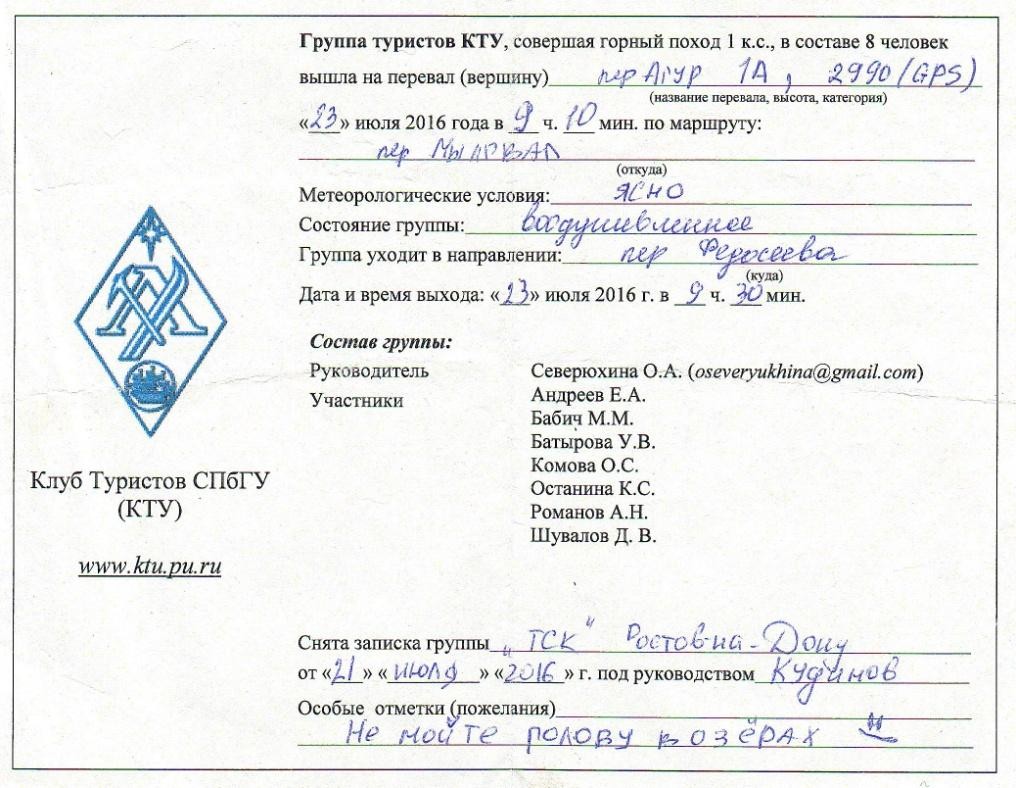 Группа туристов КТУ, совершая горный поход 1 к.с., в составе 8 человек
вышла на перевал (вершину) пер Агур 1А, 2990 (GPS)
(название перевала, высота, категория)
«23» июля 2016 года в 9 ч. 10 мин. по маршруту:
пер
(откуда)
Метеорологические условия: ЯСНО
Состояние группы: воодушевленное
Группа уходит в направлении: пер Федосеева
(куда)
Дата и время выхода: «23» июля 2016 г. в 9 ч. 30 мин.
Состав группы:
Руководитель Северюхина О.А. (oseveryukhina@gmail.com)
Участники Андреев Е.А.
Бабич М.М.
Батырова У.В.
Комова О.С.
Останина К.С.
Романов А.Н.
Шувалов Д. В.
Клуб Туристов СПбГУ
(КТУ)
www.ktu.pu.ru
Снята записка группы „ТСК" Ростов-на-Дону
от «21» «июля» «2016» г. под руководством Кудинов
Особые отметки (пожелания)
Не мойте голову в озёрах